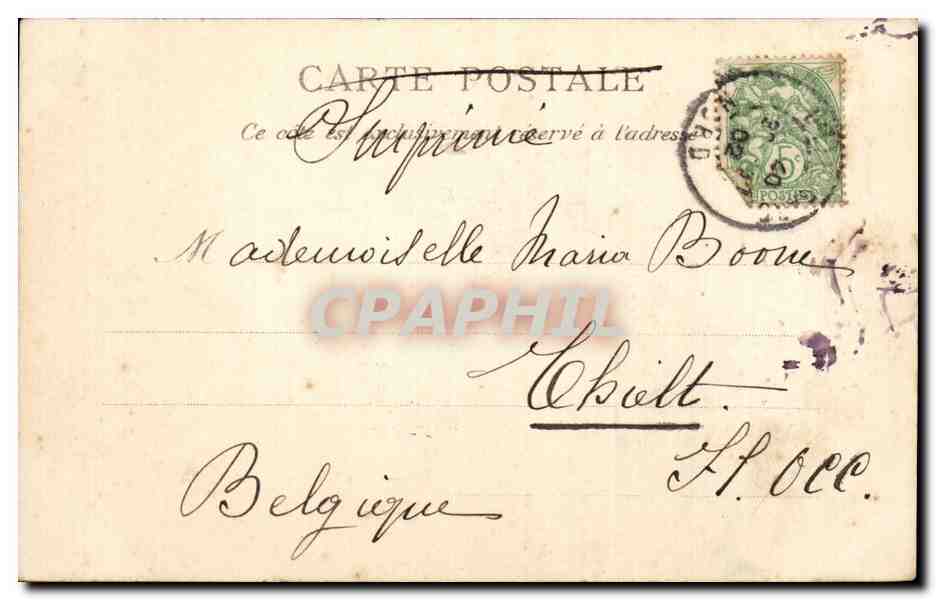 CARTE POSTALE
Imprimé
Ce côté est exclusivement réservé à l'adresse
5c
POSTES
NORD
Mademoiselle Maria Boone
CPAPHIL
Thielt.
Fl. Occ.
Belgique